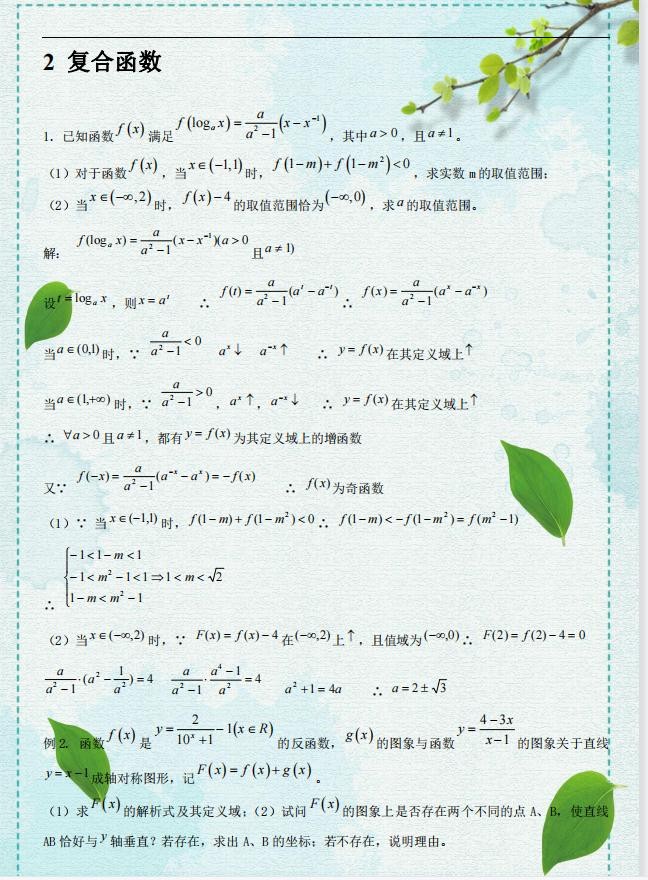 2 复合函数
1. 已知函数 f(x) 满足 f(logₐ x) = a/(a²−1) (x − x⁻¹) ，其中 a > 0 ，且 a ≠ 1 。
（1）对于函数 f(x) ，当 x∈(−1,1) 时， f(1−m) + f(1−m²) < 0 ，求实数 m 的取值范围；
（2）当 x∈(−∞,2) 时， f(x)−4 的取值范围恰为 (−∞,0) ，求 a 的取值范围。
解： f(logₐ x) = a/(a²−1) (x − x⁻¹)(a > 0 且 a ≠ 1)
设 t = logₐ x ，则 x = aᵗ ∴ f(t) = a/(a²−1) (aᵗ − a⁻ᵗ) ∴ f(x) = a/(a²−1) (aˣ − a⁻ˣ)
当 a∈(0,1) 时，∵ a/(a²−1) < 0 aˣ↓ a⁻ˣ↑ ∴ y = f(x) 在其定义域上↑
当 a∈(1,+∞) 时，∵ a/(a²−1) > 0 ， aˣ↑ ， a⁻ˣ↓ ∴ y = f(x) 在其定义域上↑
∴ ∀a > 0 且 a ≠ 1 ，都有 y = f(x) 为其定义域上的增函数
又∵ f(−x) = a/(a²−1) (a⁻ˣ − aˣ) = −f(x) ∴ f(x) 为奇函数
（1）∵ 当 x∈(−1,1) 时， f(1−m) + f(1−m²) < 0 ∴ f(1−m) < −f(1−m²) = f(m²−1)
∴ { −1 < 1−m < 1
−1 < m²−1 < 1 ⇒ 1 < m < √2
1−m < m²−1
（2）当 x∈(−∞,2) 时，∵ F(x) = f(x)−4 在 (−∞,2) 上↑，且值域为 (−∞,0) ∴ F(2) = f(2)−4 = 0
a/(a²−1)·(a² − 1/a²) = 4 a/(a²−1)·(a⁴−1)/a² = 4 a²+1 = 4a ∴ a = 2±√3
例 2. 函数 f(x) 是 y = 2/(10ˣ+1) − 1(x∈R) 的反函数， g(x) 的图象与函数 y = (4−3x)/(x−1) 的图象关于直线
y = x−1 成轴对称图形，记 F(x) = f(x) + g(x) 。
（1）求 F(x) 的解析式及其定义域；（2）试问 F(x) 的图象上是否存在两个不同的点 A、B，使直线
AB 恰好与 y 轴垂直？若存在，求出 A、B 的坐标；若不存在，说明理由。